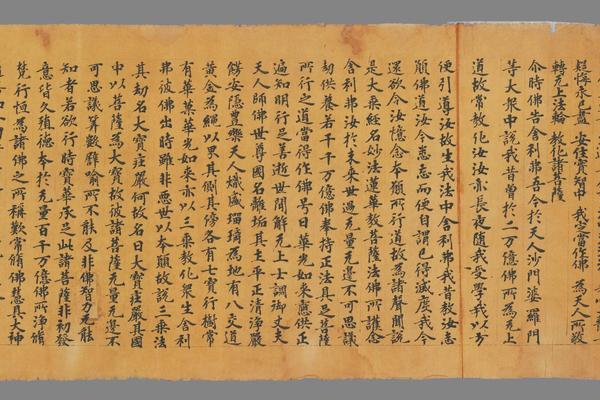 疑悔永已盡 安住實智中 我定當作佛 為天人所敬
轉无上法輪 教化諸菩薩
尒時佛告舍利弗吾今於天人沙門婆羅門
等大衆中說我昔曾於二万億佛所為无上
道故常教化汝汝亦長夜隨我受學我以方
便引導汝故生我法中舍利弗我昔教汝志
願佛道汝今悉忘而便自謂已得滅度我今
還欲令汝憶念本願所行道故為諸聲聞說
是大乘經名妙法蓮華教菩薩法佛所護念
舍利弗汝於未來世過无量无邊不可思議
劫供養若干千万億佛奉持正法具足菩薩
所行之道當得作佛号曰華光如來應供正
遍知明行足善逝世間解无上士調御丈夫
天人師佛世尊國名離垢其土平正清淨嚴
餝安隱豊樂天人熾盛瑠璃為地有八交道
黃金為繩以界其側其傍各有七寶行樹常
有華菓華光如來亦以三乘教化衆生舍利
弗彼佛出時雖非惡世以本願故說三乘法
其劫名大寶莊嚴何故名曰大寶莊嚴其國
中以菩薩為大寶故彼諸菩薩无量无邊不
可思議筭數譬喻所不能及非佛智力无能
知者若欲行時寶華承足此諸菩薩非初發
意皆久殖德本於无量百千万億佛所淨脩
梵行恒為諸佛之所稱歎常脩佛慧具大神